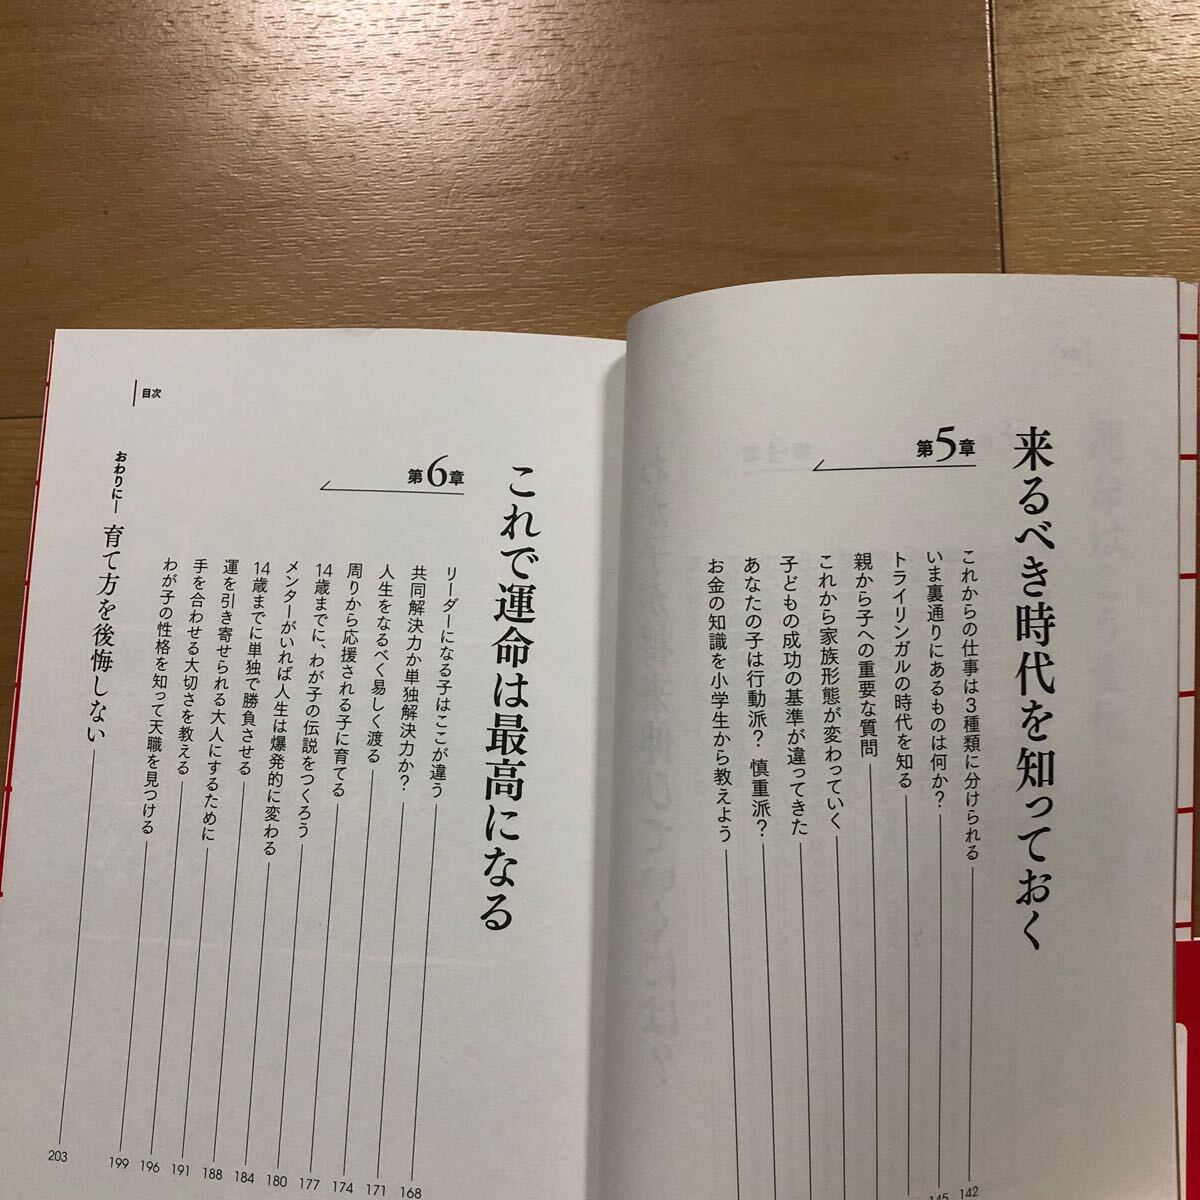 来るべき時代を知っておく
第5章
これからの仕事は3種類に分けられる 142
いま裏通りにあるものは何か? 145
トライリンガルの時代を知る
親から子への重要な質問
これから家族形態が変わっていく
子どもの成功の基準が違ってきた
あなたの子は行動派? 慎重派?
お金の知識を小学生から教えよう
これで運命は最高になる
第6章
リーダーになる子はここが違う 168
共同解決力か単独解決力か? 171
人生をなるべく易しく渡る 174
周りから応援される子に育てる 177
14歳までに、わが子の伝説をつくろう 180
メンターがいれば人生は爆発的に変わる 184
14歳までに単独で勝負させる 188
運を引き寄せられる大人にするために 191
手を合わせる大切さを教える 196
わが子の性格を知って天職を見つける 199
おわりに― 育て方を後悔しない 203
目次